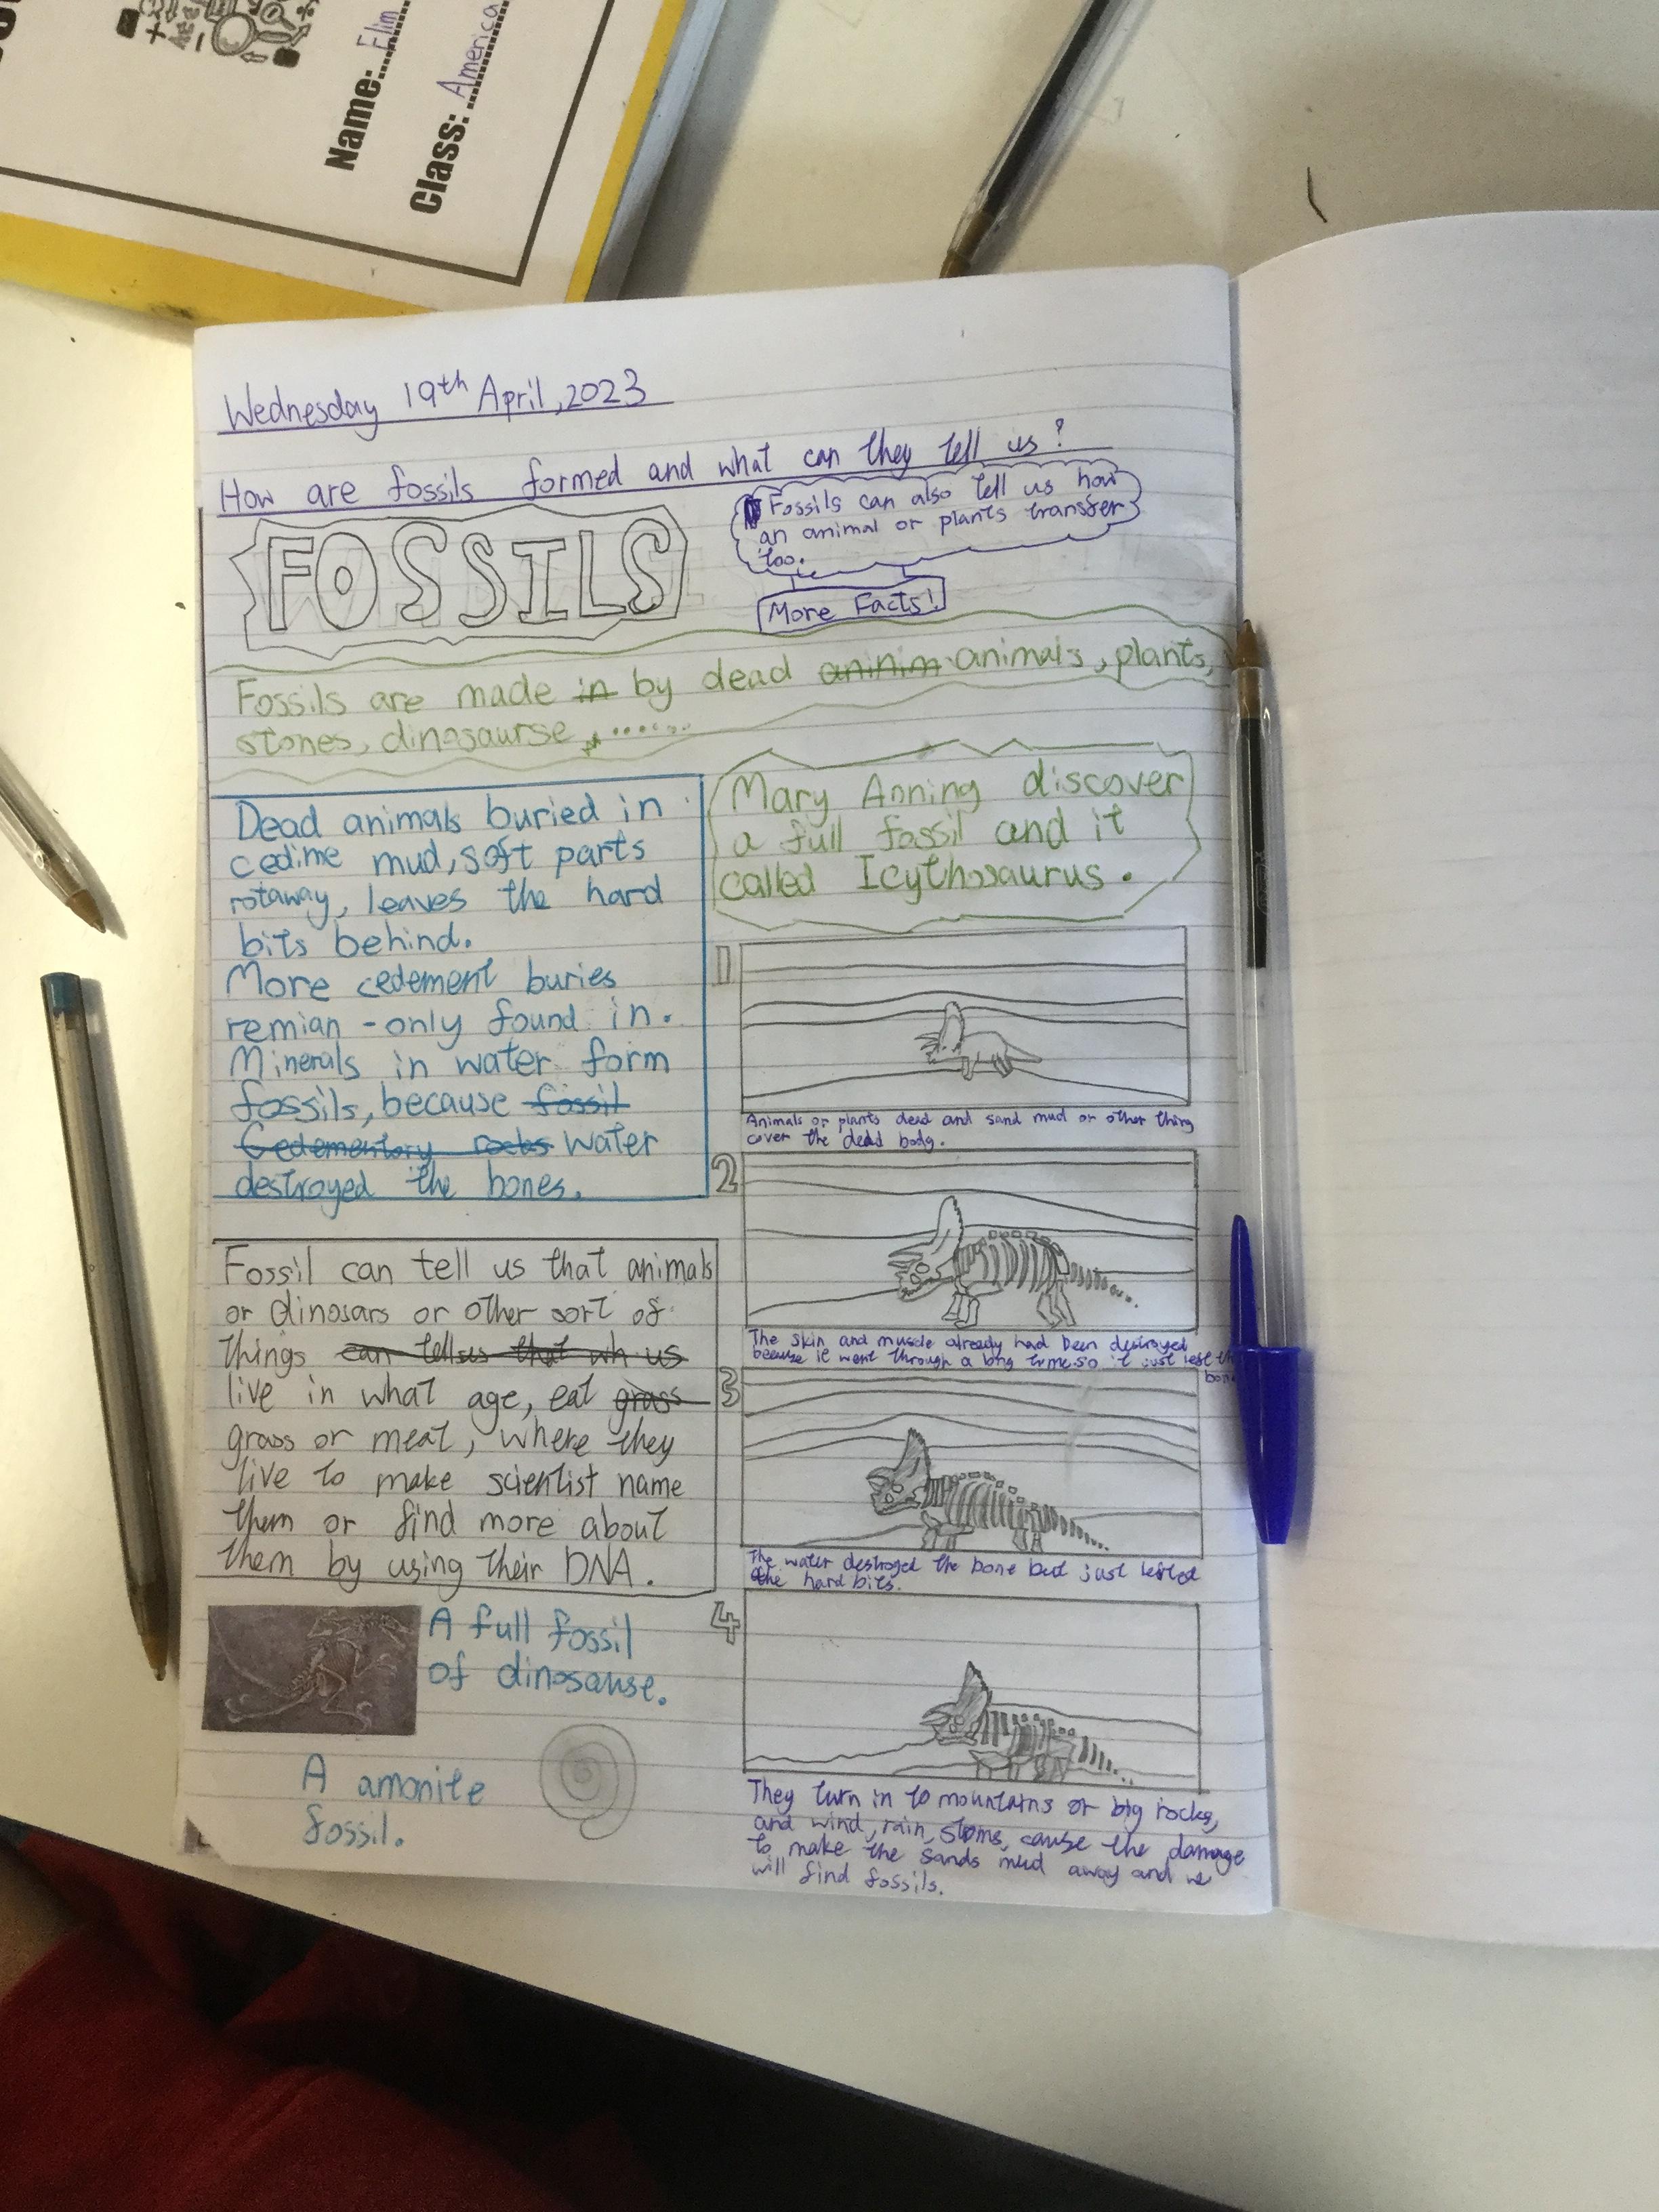 Name: Elim
Class: America
Wednesday 19th April, 2023
How are fossils formed and what can they tell us?
FOSSILS
Fossils can also tell us how
an animal or plants transfer
too.
More Facts!
Fossils are made in by dead aninim animals, plants,
stones, dinosaurse, ......
Dead animals buried in
cedime mud, soft parts
rotaway, leaves the hard
bits behind.
More cedement buries
remian - only found in.
Minerals in water form
fossils, because fossil
Cedementory rocks water
destroyed the bones.
Mary Anning discover
a full fossil and it
called Icythosaurus.
Fossil can tell us that animals
or dinosars or other sort of
things can tell us that wh us
live in what age, eat grass
grass or meat, where they
live to make scientist name
them or find more about
them by using their DNA.
A full fossil
of dinosause.
A amonite
fossil.
1
Animals or plants dead and sand mud or other thing
cover the dead body.
2
The skin and muscle already had been destroyed
because it went through a long time so it just left the
bone
3
The water destroyed the bone but just lefted
the hard bits.
4
They turn in to mountains or big rocks,
and wind, rain, stoms, cause the damage
to make the sands mud away and we
will find fossils.